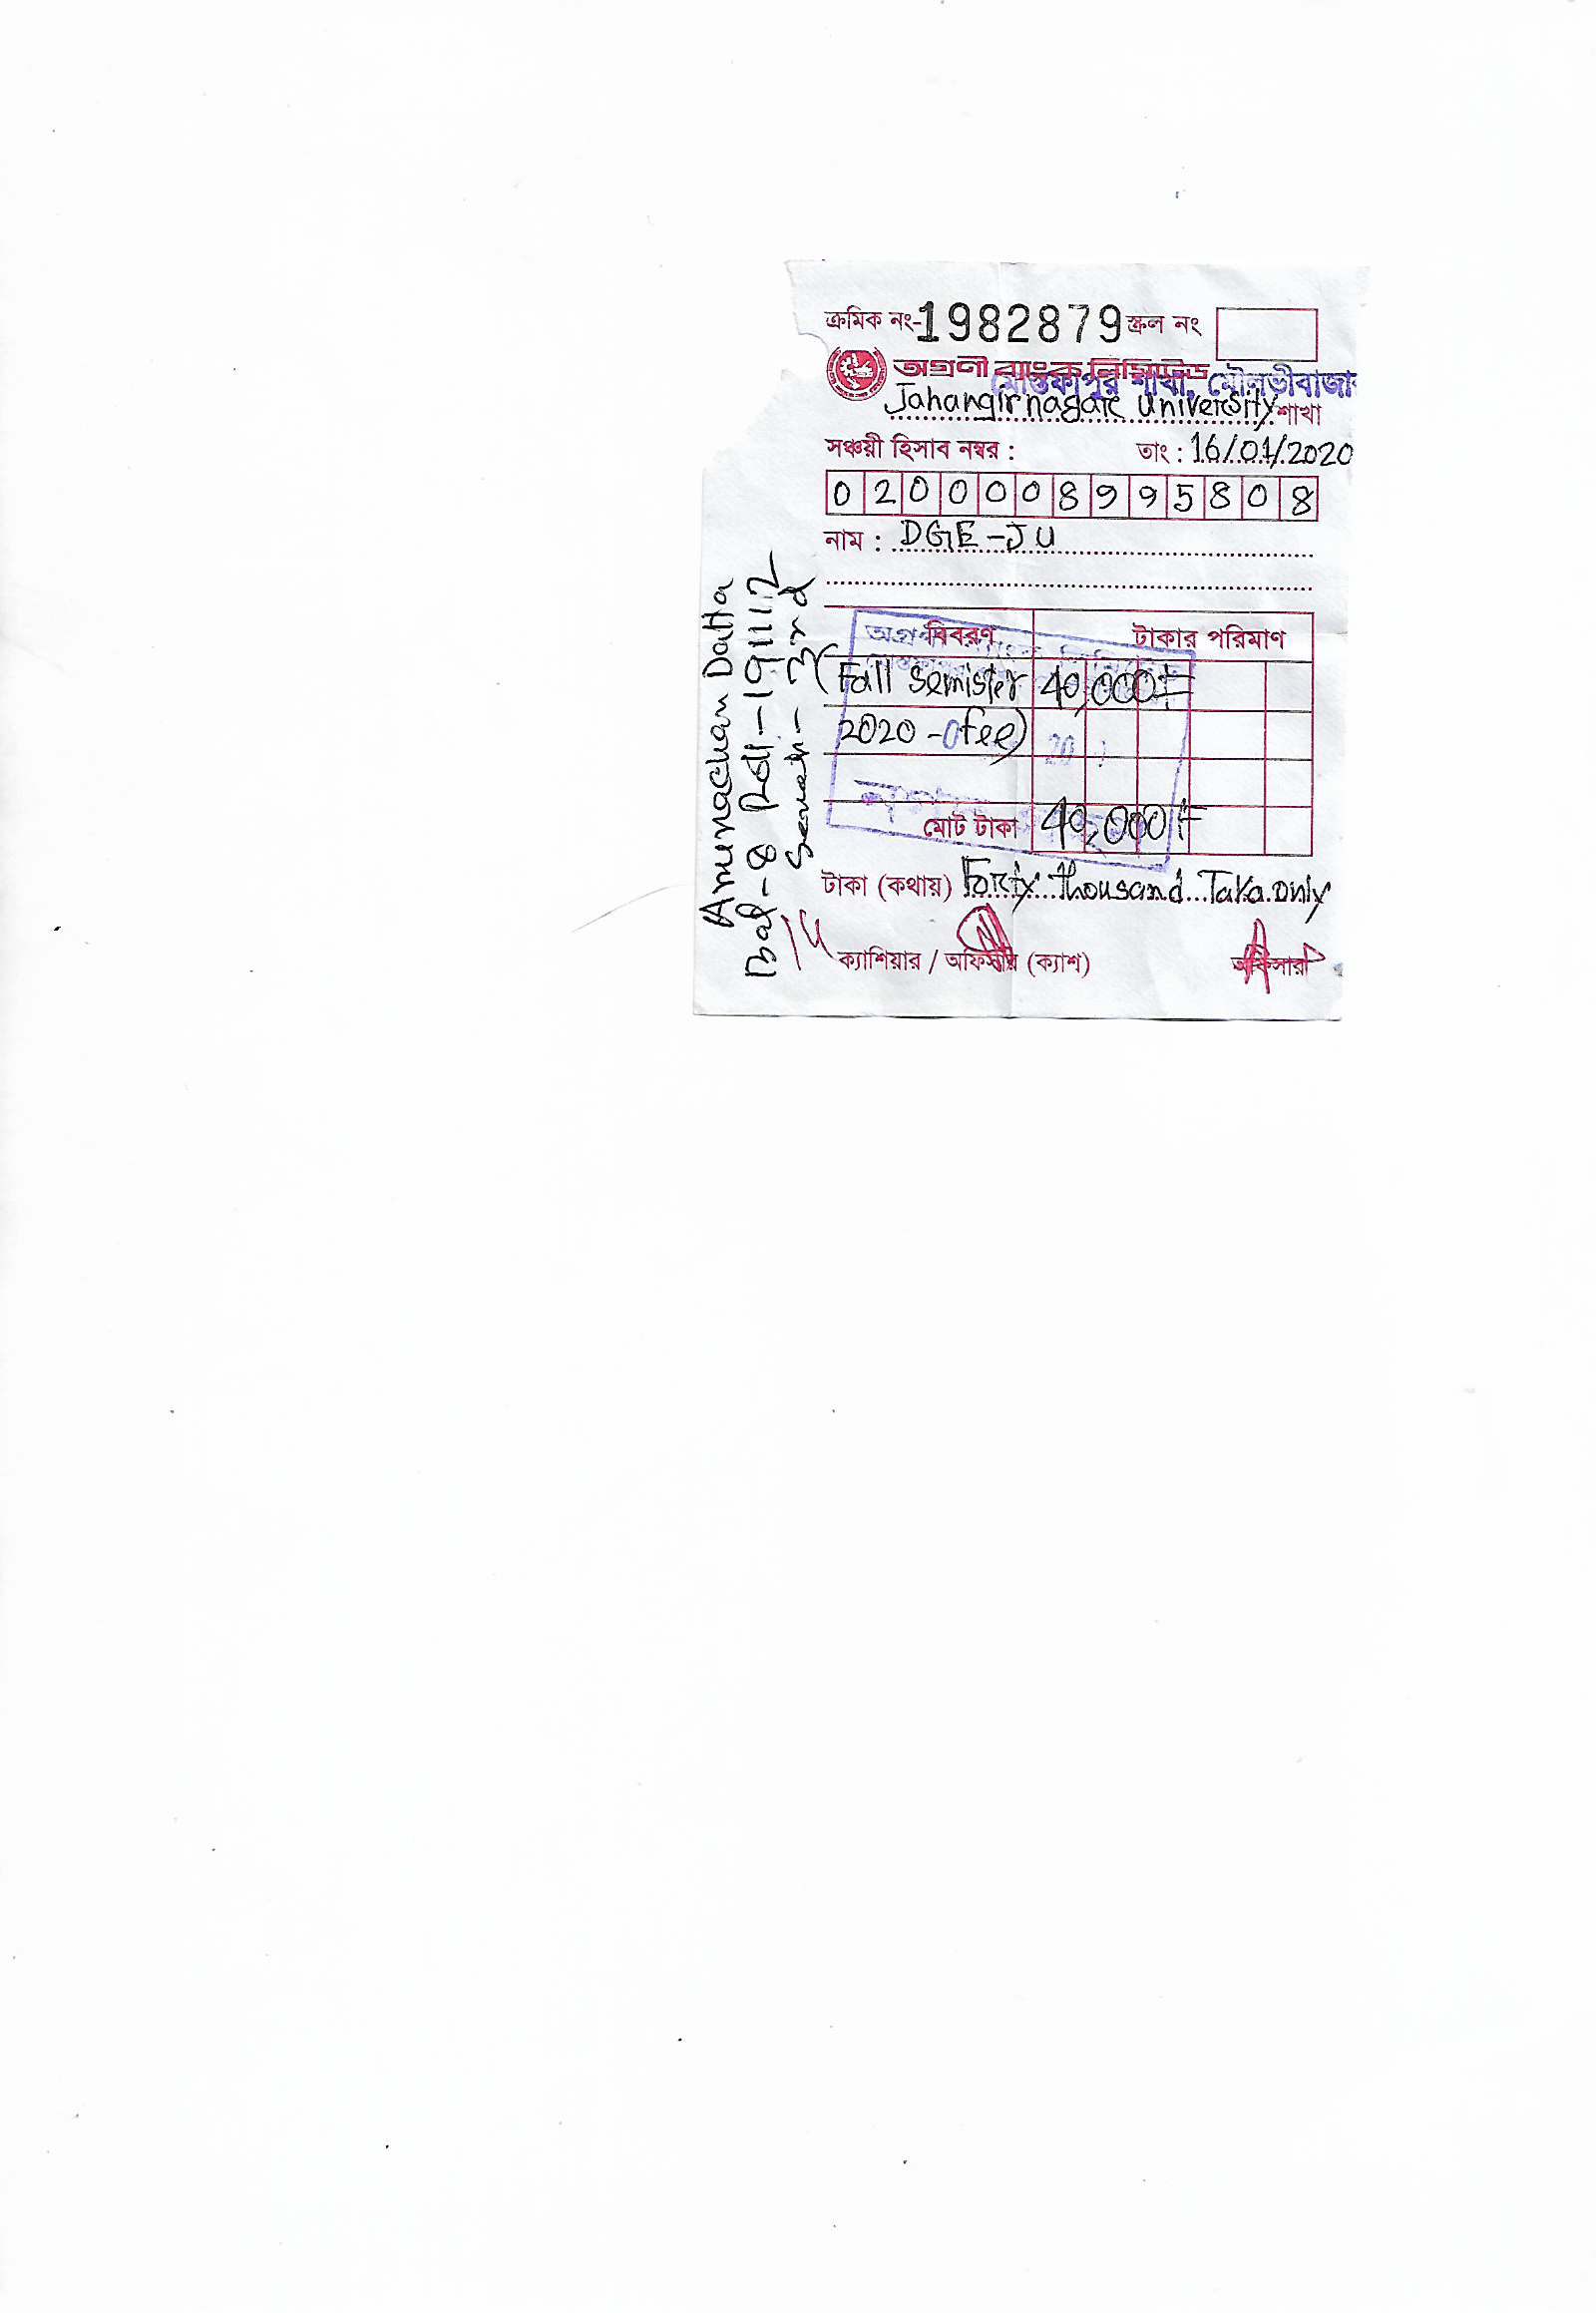 ক্রমিক নং-1982879 স্ক্রল নং
অগ্রণী ব্যাংক লিমিটেড
মোস্তফাপুর শাখা, মৌলভীবাজার
Jahangirnagar University শাখা
সঞ্চয়ী হিসাব নম্বর : তাং : 16/01/2020
0200008995808
নাম : DGE-JU
বিবরণ টাকার পরিমাণ
(Fall semister 40,000/=
2020 - fee)
মোট টাকা 40,000/=
টাকা (কথায়) Forty thousand Taka only
ক্যাশিয়ার / অফিসার (ক্যাশ) অফিসার
Datta
Bat-8 Roll-191112
3rd